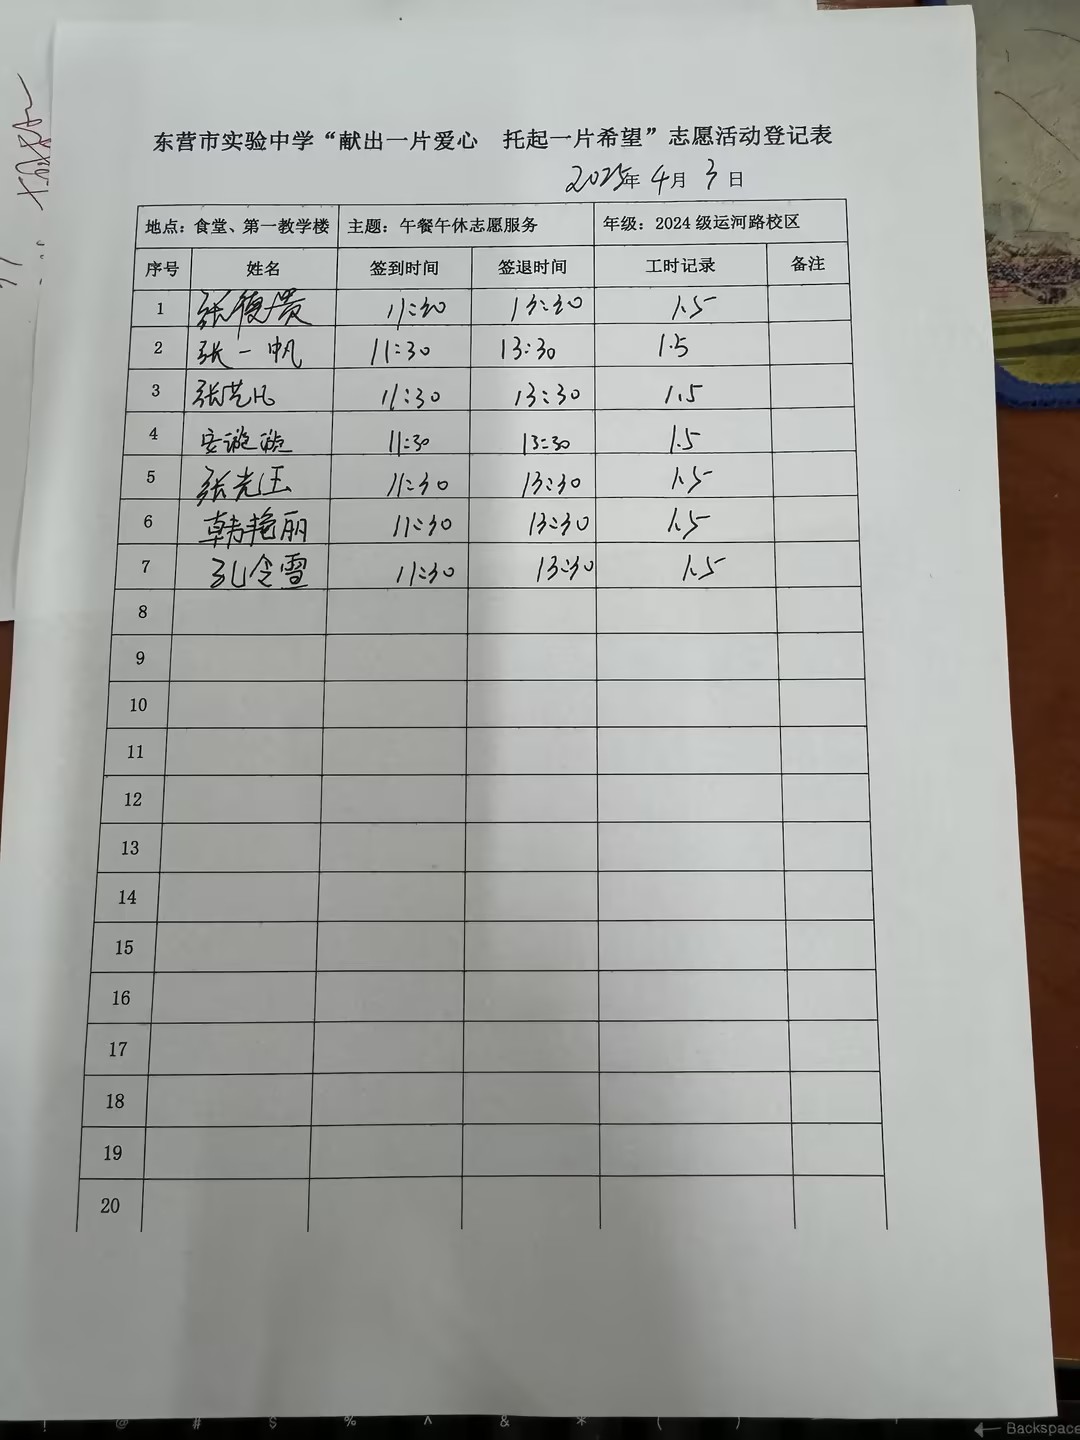 东营市实验中学“献出一片爱心　托起一片希望”志愿活动登记表
2025年 4月 3日
地点：食堂、第一教学楼 主题：午餐午休志愿服务 年级：2024 级运河路校区
序号 姓名 签到时间 签退时间 工时记录 备注
1 张俊贵 11:30 13:30 1.5
2 张一帆 11:30 13:30 1.5
3 张艺凡 11:30 13:30 1.5
4 安漩漩 11:30 13:30 1.5
5 张光玉 11:30 13:30 1.5
6 韩艳丽 11:30 13:30 1.5
7 孔令雪 11:30 13:30 1.5
8
9
10
11
12
13
14
15
16
17
18
19
20
! @ # $ % ^ & * ( )
Backspace